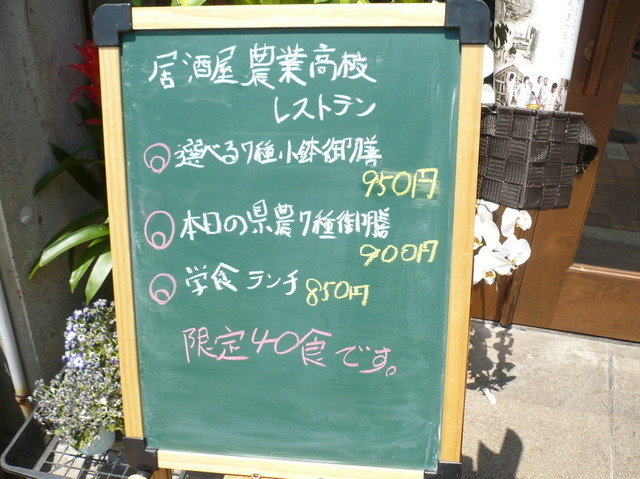 居酒屋 農業高校
レストラン
◎選べる7種小鉢御膳
950円
◎本日の県農7種御膳
900円
◎学食ランチ 850円
限定40食です。